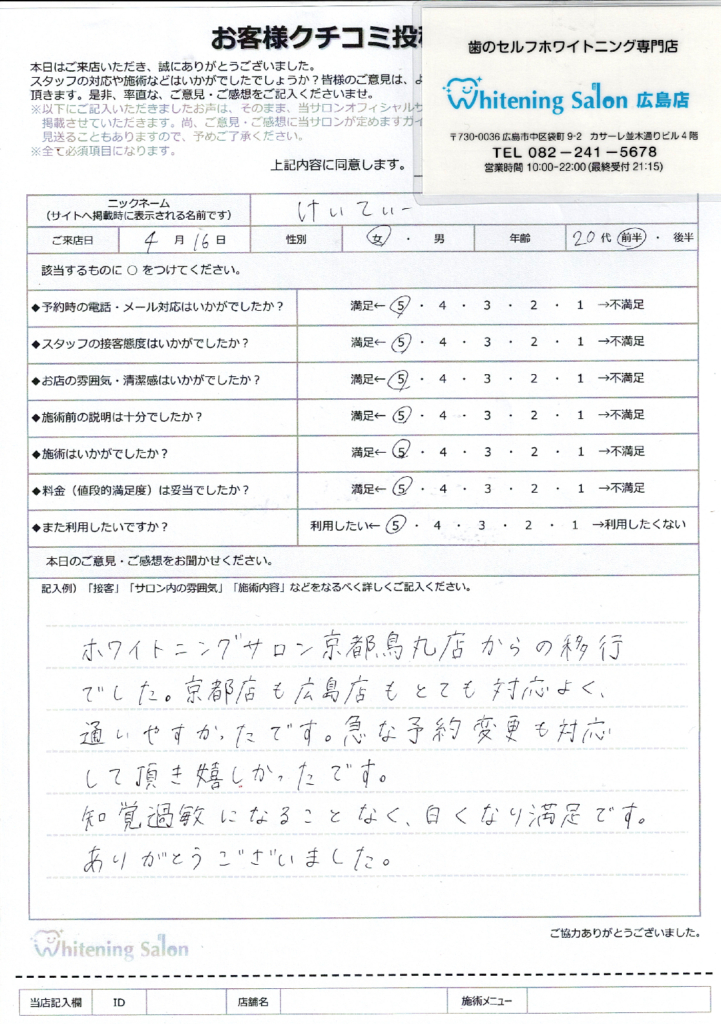 お客様クチコミ投稿
本日はご来店いただき、誠にありがとうございました。
スタッフの対応や施術などはいかがでしたでしょうか？皆様のご意見は、よ
頂きます。是非、率直な、ご意見・ご感想をご記入くださいませ。
※以下にご記入いただきましたお声は、そのまま、当サロンオフィシャルサ
掲載させていただきます。尚、ご意見・ご感想に当サロンが定めますガイ
見送ることもありますので、予めご了承ください。
※全て必須項目になります。
上記内容に同意します。
歯のセルフホワイトニング専門店
Whitening Salon 広島店
〒730-0036 広島市中区袋町 9-2 カサーレ並木通りビル 4 階
TEL 082－241－5678
営業時間 10:00-22:00 (最終受付 21:15)
ニックネーム
（サイトへ掲載時に表示される名前です） けいてぃー
ご来店日 4 月 16 日 性別 女 ・ 男 年齢 20 代 前半 ・ 後半
該当するものに ○ をつけてください。
◆予約時の電話・メール対応はいかがでしたか？ 満足← 5 ・ 4 ・ 3 ・ 2 ・ 1 →不満足
◆スタッフの接客態度はいかがでしたか？ 満足← 5 ・ 4 ・ 3 ・ 2 ・ 1 →不満足
◆お店の雰囲気・清潔感はいかがでしたか？ 満足← 5 ・ 4 ・ 3 ・ 2 ・ 1 →不満足
◆施術前の説明は十分でしたか？ 満足← 5 ・ 4 ・ 3 ・ 2 ・ 1 →不満足
◆施術はいかがでしたか？ 満足← 5 ・ 4 ・ 3 ・ 2 ・ 1 →不満足
◆料金（値段的満足度）は妥当でしたか？ 満足← 5 ・ 4 ・ 3 ・ 2 ・ 1 →不満足
◆また利用したいですか？ 利用したい← 5 ・ 4 ・ 3 ・ 2 ・ 1 →利用したくない
本日のご意見・ご感想をお聞かせください。
記入例）「接客」「サロン内の雰囲気」「施術内容」などをなるべく詳しくご記入ください。
ホワイトニングサロン京都烏丸店からの移行
でした。京都店も広島店もとても対応よく、
通いやすかったです。急な予約変更も対応
して頂き嬉しかったです。
知覚過敏になることなく、白くなり満足です。
ありがとうございました。
Whitening Salon
ご協力ありがとうございました。
当店記入欄 ID 店舗名 施術メニュー